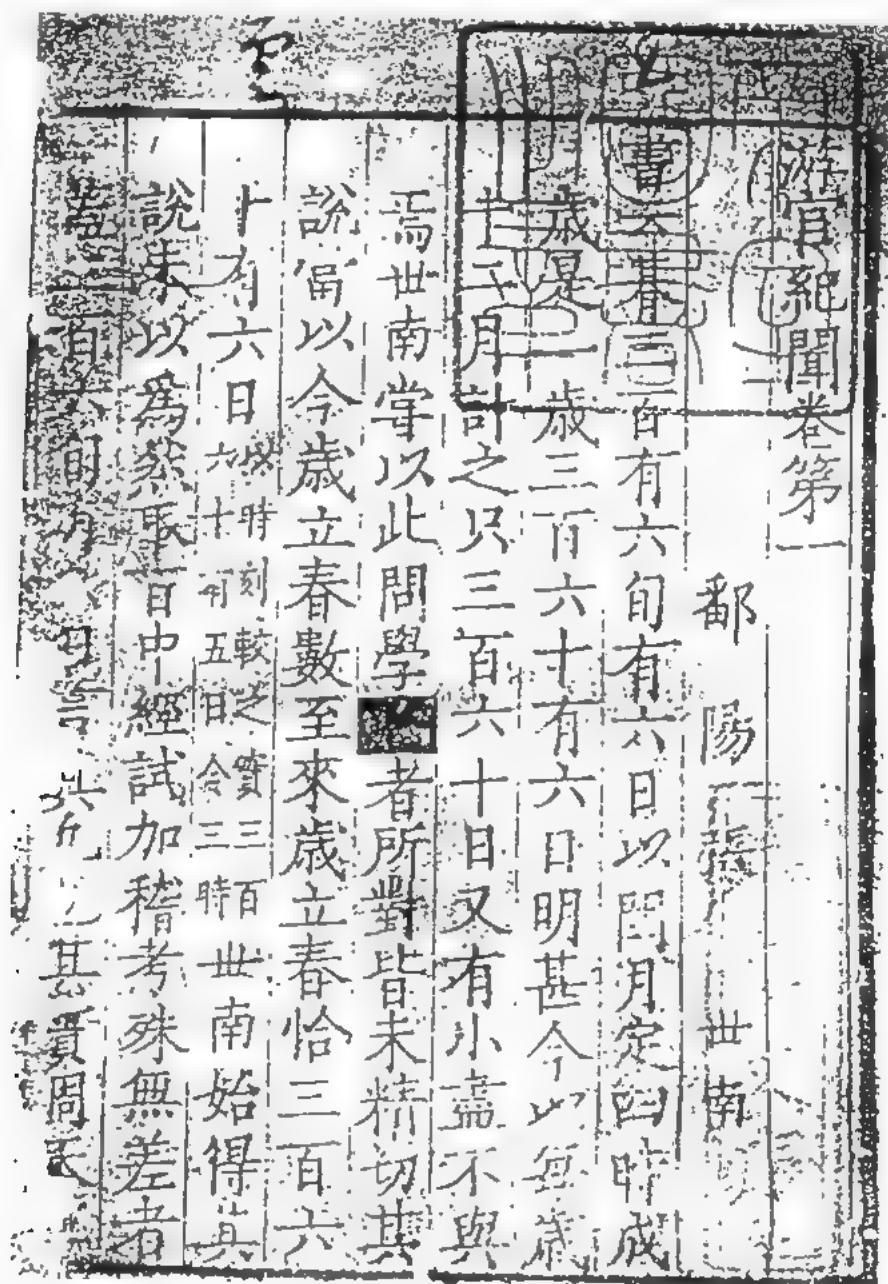 游宦紀聞卷第一
鄱陽張世南
書云朞三百有六旬有六日以閏月定四時成
歲是一歲三百六十有六日明甚今以每歲
十二月計之只三百六十日又有小盡不與
焉世南嘗以此問學者所對皆未精切其
說當以今歲立春數至來歲立春恰三百六
十有六日以時刻較之實三百六十有五日令三時世南始得其
說未以為然取百中經試加稽考殊無差者
蓋三百六旬有六日言其凡也其實周天